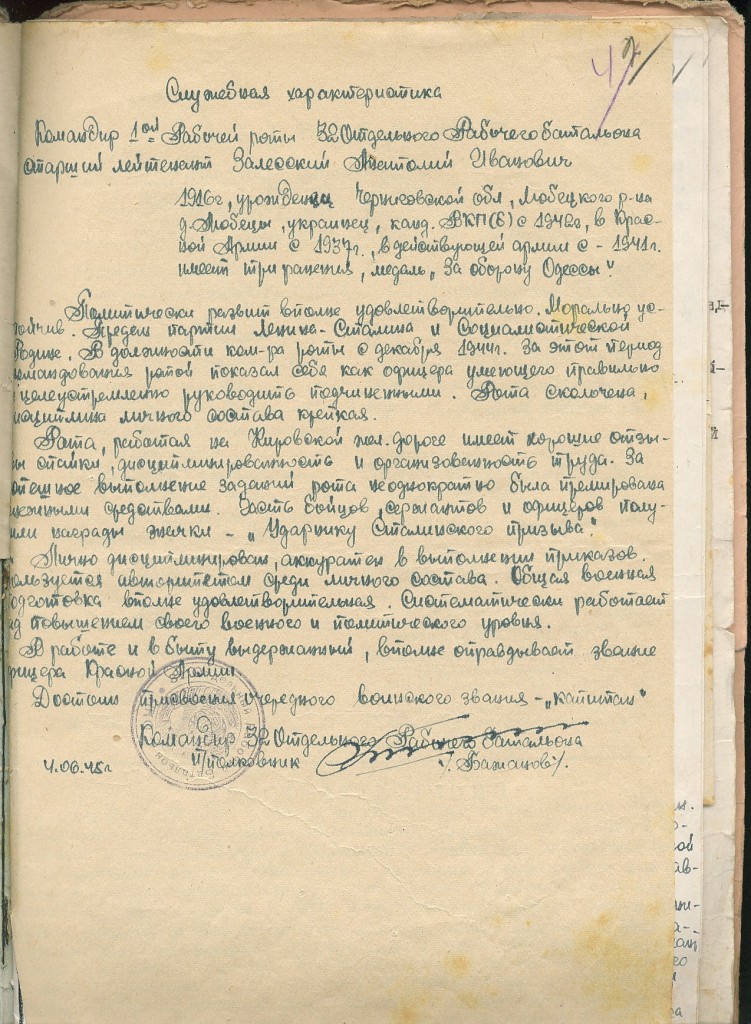 4
Служебная характеристика
Командир 1ой Рабочей роты 32 Отдельного Рабочего батальона
старший лейтенант Залесский Анатолий Иванович
1916г, урожденец Черниговской обл, Любецкого р-на
д. Любецы, украинец, канд. ВКП(б) с 1942г, в Крас-
ной Армии с 1937г., в действующей армии с - 1941г.
имеет три ранения, медаль „За оборону Одессы".
Политически развит вполне удовлетворительно. Морально ус-
тойчив. Предан партии Ленина-Сталина и Социалистической
Родине, В должности ком-ра роты с декабря 1944г. За этот период
командования ротой показал себя как офицера умеющего правильно
целеустремленно руководить подчиненными. Рота сколочена,
дисциплина личного состава крепкая.
Рота, работая на Кировской жел. дороге имеет хорошие отзы-
вы спайки, дисциплинированность и организованность труда. За
успешное выполнение заданий рота неоднократно была премирована
денежными средствами. Часть бойцов, сержантов и офицеров полу-
чили награды значки - „Ударнику Сталинского призыва".
Лично дисциплинирован, аккуратен в выполнении приказов.
Пользуется авторитетом среди личного состава. Общая военная
подготовка вполне удовлетворительная. Систематически работает
над повышением своего военного и политического уровня.
В работе и в быту выдержанный, вполне оправдывает звание
офицера Красной Армии
Достоин присвоения очередного воинского звания - „капитан"
Командир 32 Отдельного Рабочего батальона
П/полковник /Бажанов/.
4.06.45г.